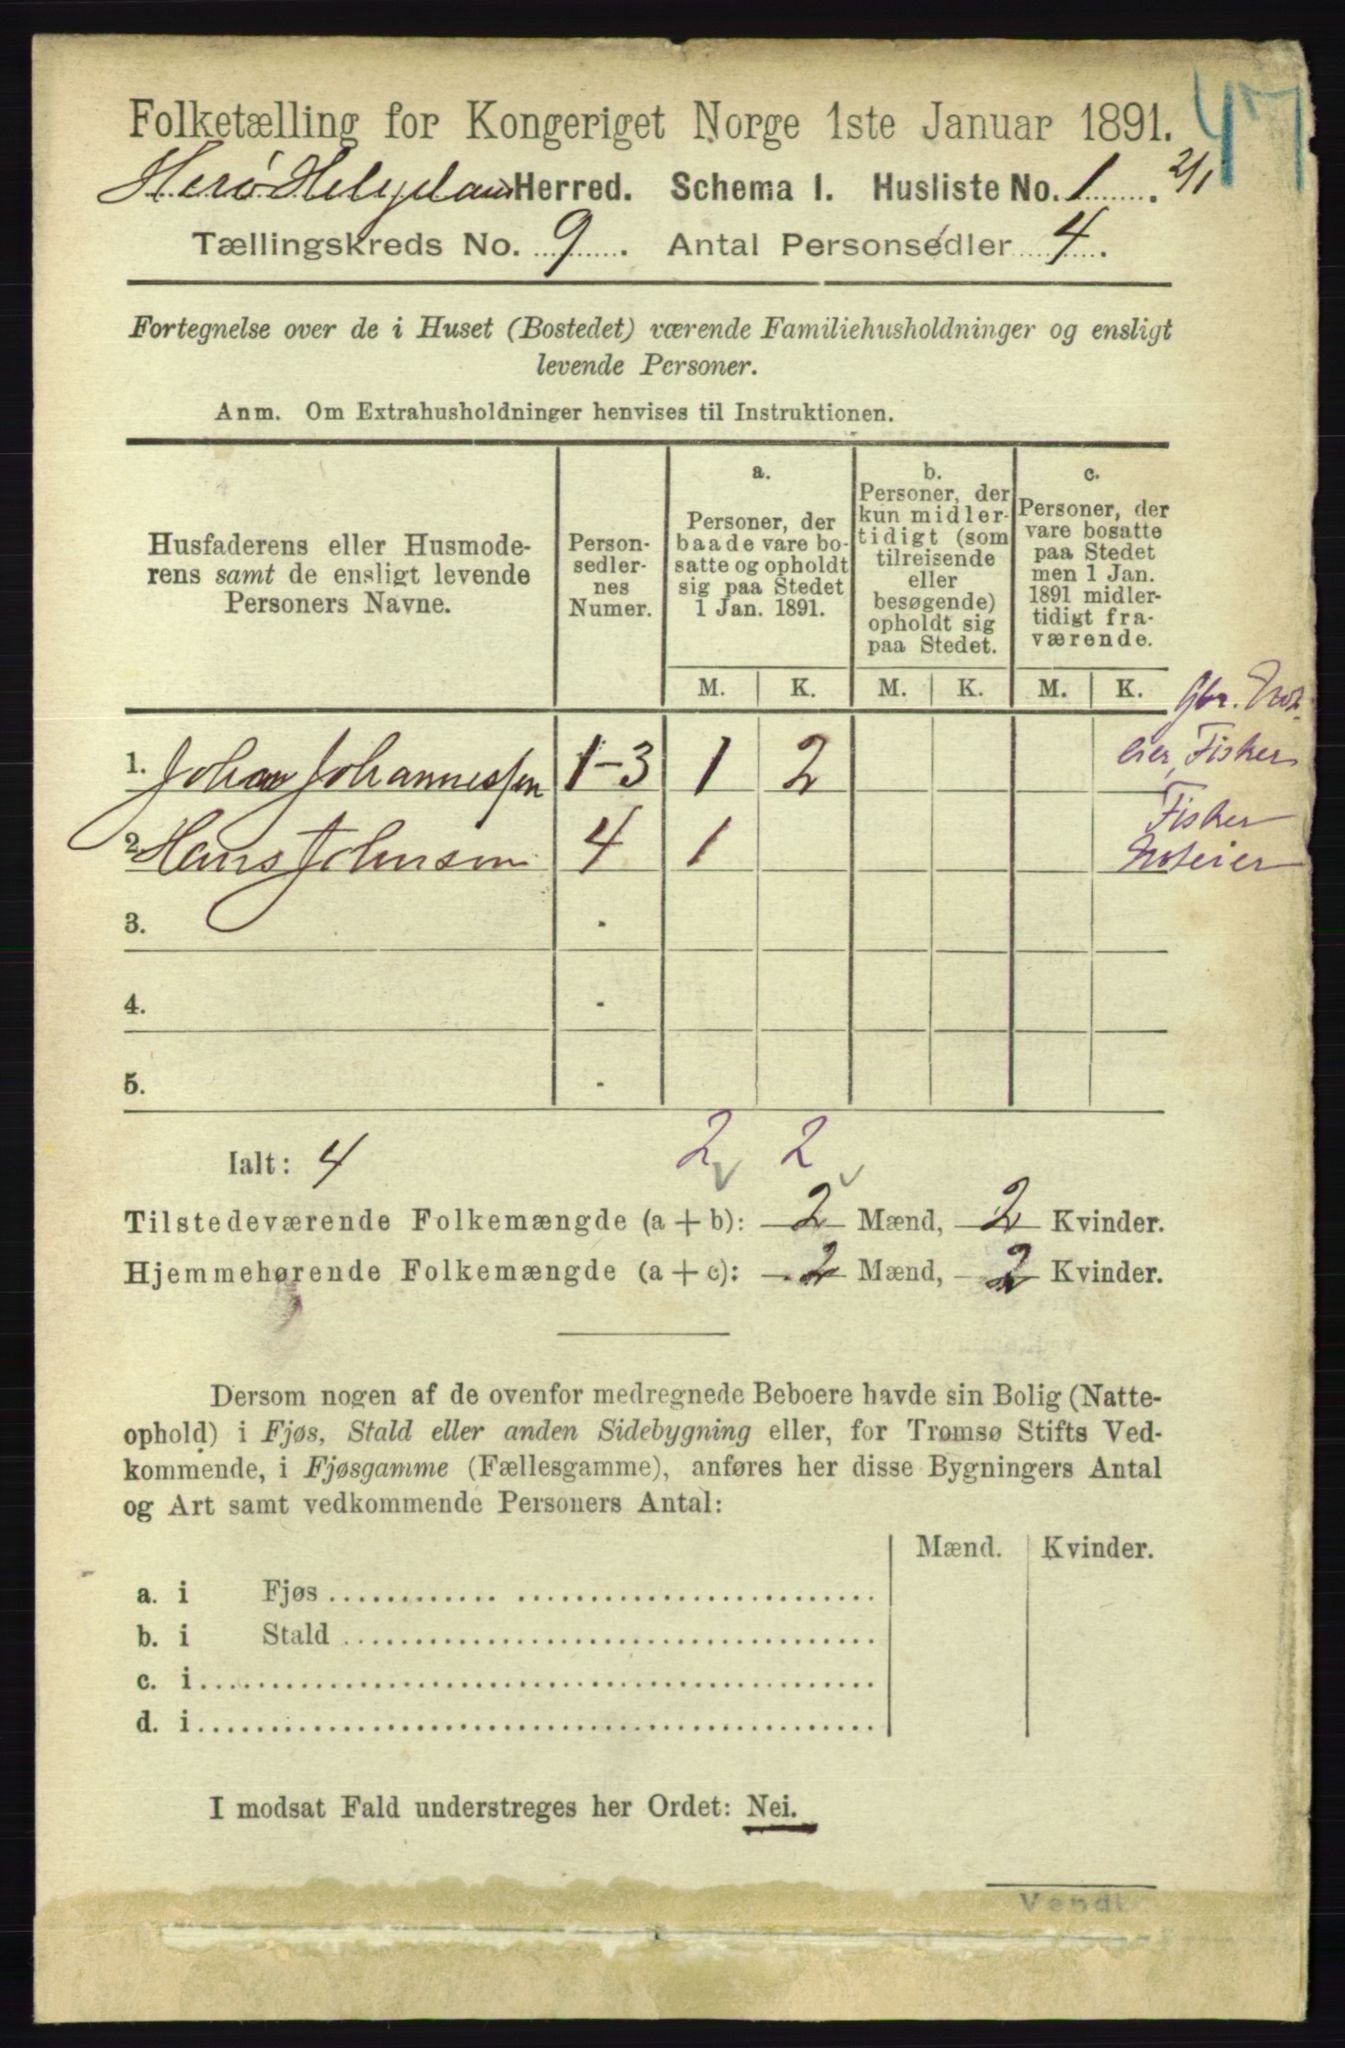 47
Folketælling for Kongeriget Norge 1ste Januar 1891.
Herø Helgeland Herred. Schema 1. Husliste No. 1. 2/1
Tællingskreds No. 9. Antal Personsedler 4.
Fortegnelse over de i Huset (Bostedet) værende Familiehusholdninger og ensligt
levende Personer.
Anm. Om Extrahusholdninger henvises til Instruktionen.
Husfaderens eller Husmode-
rens samt de ensligt levende
Personers Navne.
Person-
sedler-
nes
Numer.
a.
Personer, der
baade vare bo-
satte og opholdt
sig paa Stedet
1 Jan. 1891.
b.
Personer, der
kun midler-
tidigt (som
tilreisende
eller
besøgende)
opholdt sig
paa Stedet.
c.
Personer, der
vare bosatte
paa Stedet
men 1 Jan.
1891 midler-
tidigt fra-
værende.
M. K. M. K. M. K.
Gbr. Not
1. Johan Johannessen 1-3 1 2 eier, Fisker
Fisker
2. Hans Johnsen 4 1 Noteier
3. -
4. -
5. -
Ialt: 4 2 2
Tilstedeværende Folkemængde (a + b): 2 Mænd, 2 Kvinder.
Hjemmehørende Folkemængde (a + c): 2 Mænd, 2 Kvinder.
Dersom nogen af de ovenfor medregnede Beboere havde sin Bolig (Natte-
ophold) i Fjøs, Stald eller anden Sidebygning eller, for Tromsø Stifts Ved-
kommende, i Fjøsgamme (Fællesgamme), anføres her disse Bygningers Antal
og Art samt vedkommende Personers Antal:
Mænd. Kvinder.
a. i Fjøs
b. i Stald
c. i
d. i
I modsat Fald understreges her Ordet: Nei.
Vend!